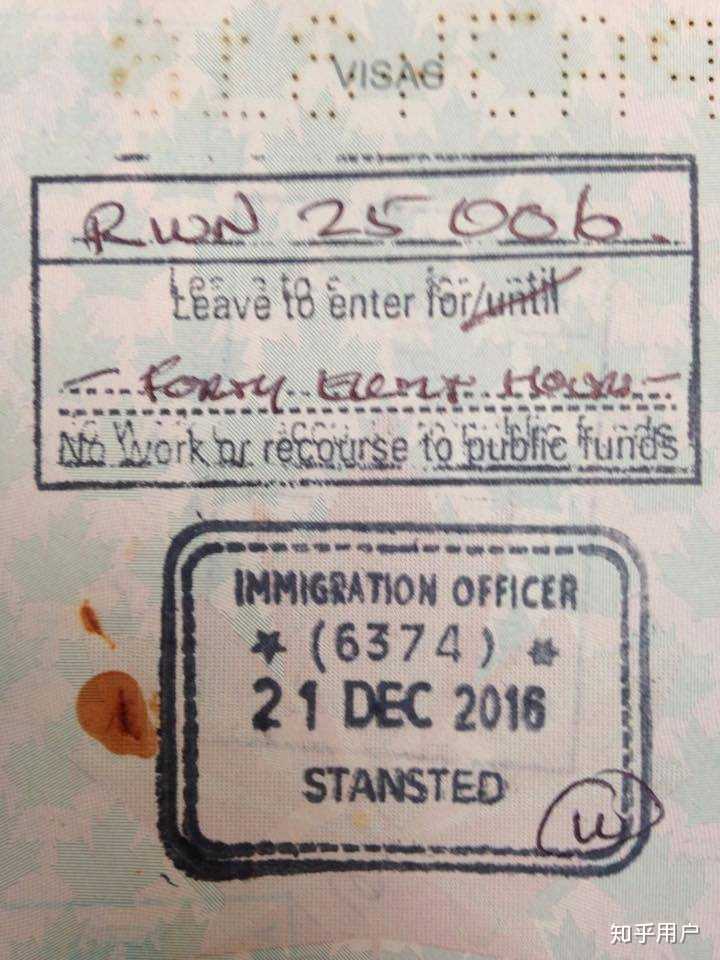 VISAS
RWN 25 006.
Leave to enter for/until
- FORTY EIGHT HOURS -
No work or recourse to public funds
IMMIGRATION OFFICER
★ (6374) ★
21 DEC 2016
STANSTED
W
知乎用户